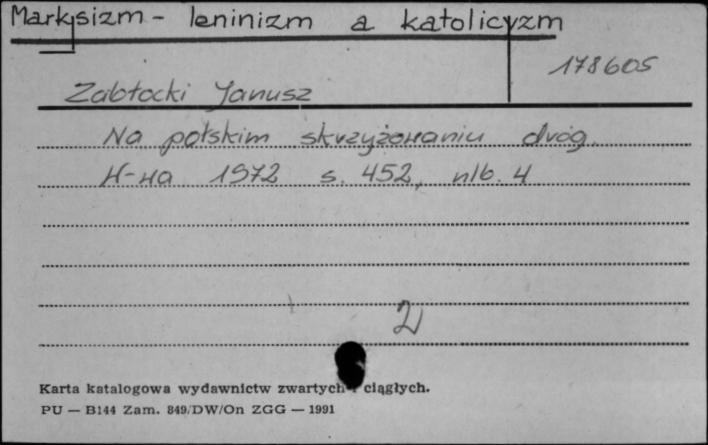 Marksizm - leninizm a katolicyzm
178605
Zabłocki Janusz
Na polskim skrzyżowaniu dróg.
W-wa 1972 s. 452, nlb. 4
2
Karta katalogowa wydawnictw zwartych i ciągłych.
PU — B144 Zam. 849/DW/On ZGG — 1991